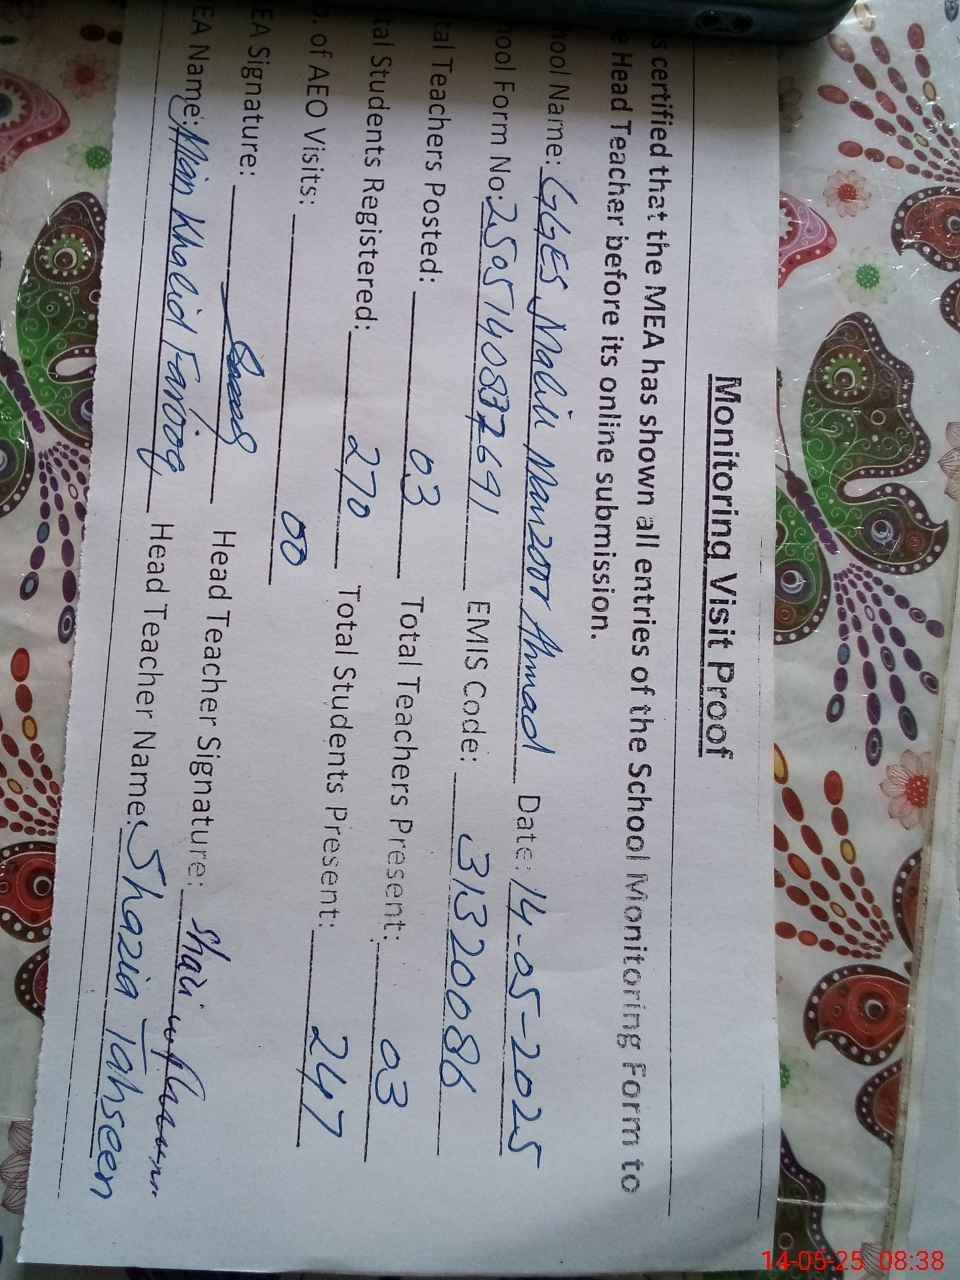 Monitoring Visit Proof
s certified that the MEA has shown all entries of the School Monitoring Form to
e Head Teacher before its online submission.
ool Name: GGES Mohill Manzoor Ahmad Date: 14-05-2025
ool Form No: 2505140837691 EMIS Code: 31320086
tal Teachers Posted: 03 Total Teachers Present: 03
tal Students Registered: 270 Total Students Present: 247
. of AEO Visits: 00
EA Signature: Head Teacher Signature:
EA Name: Mian Khalid Farooq Head Teacher Name: Shazia Tahseen
14-05-25 08:38